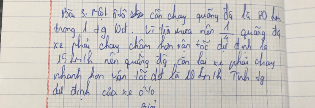 Bài 3. Một ô tô cần chạy quãng đg là 80 km
trong tg đã. Vì trời mưa nên quãng đg
xe phải chạy chậm hơn vận tốc dự định là
15 km/h nên quãng đg còn lại xe phải chạy
nhanh hơn vận tốc dđ là 10 km/h Tính tg
dự định của xe ô tô
Giải